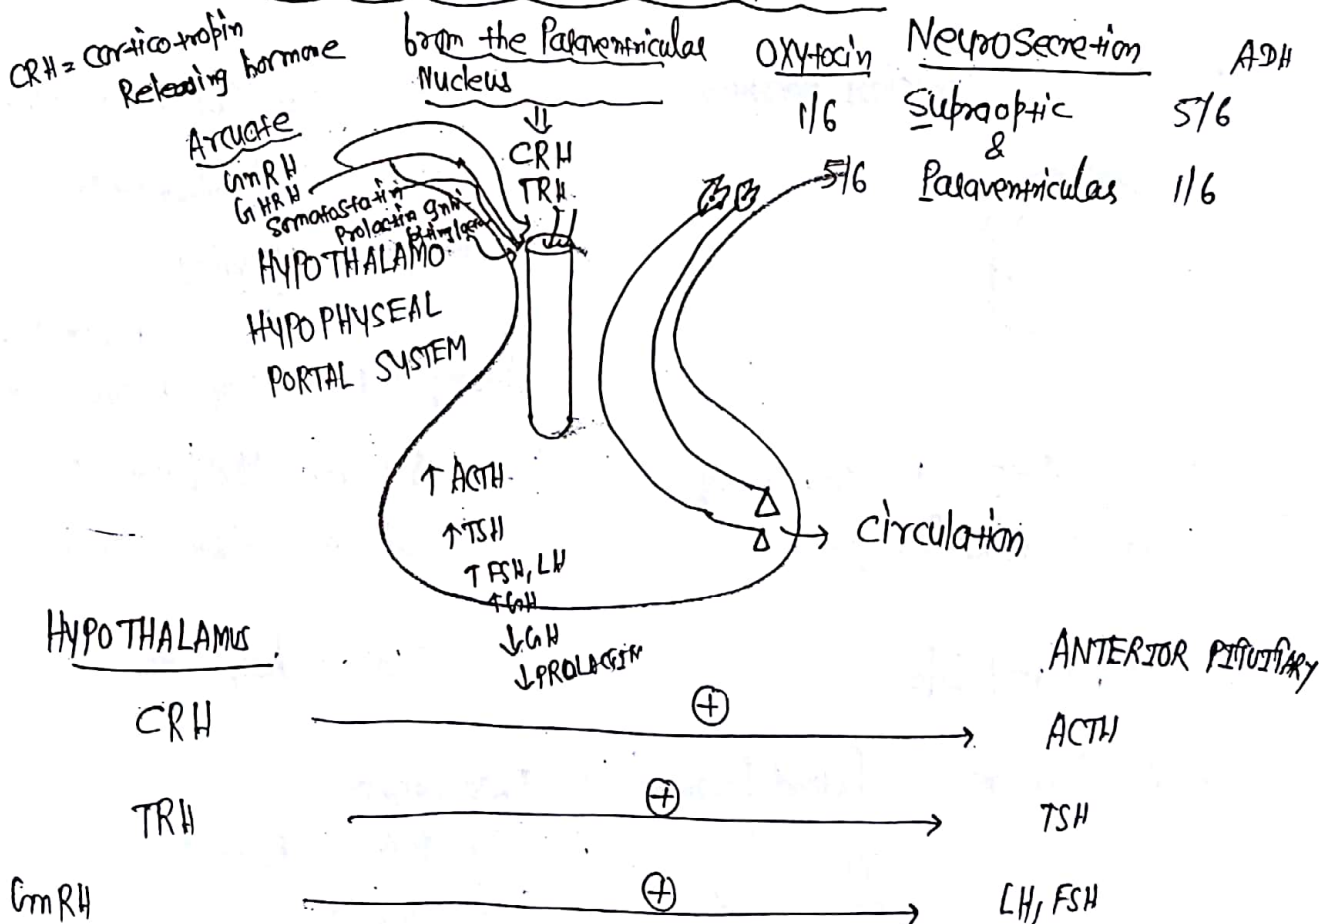 CRH = corticotropin
Releasing hormone
from the Paraventricular
Nucleus
⇓
CRH
TRH
Oxytocin Neurosecretion ADH
1/6 Supraoptic 5/6
&
5/6 Paraventricular 1/6
Arcuate
GnRH
GHRH
Somatostatin
Prolactin
HYPOTHALAMO
HYPOPHYSEAL
PORTAL SYSTEM
↑ ACTH
↑ TSH
↑ FSH, LH
↑ GH
↓ GH
↓ PROLACTIN
→ circulation
HYPOTHALAMUS ANTERIOR PITUITARY
CRH ⊕ → ACTH
TRH ⊕ → TSH
GnRH ⊕ → LH, FSH